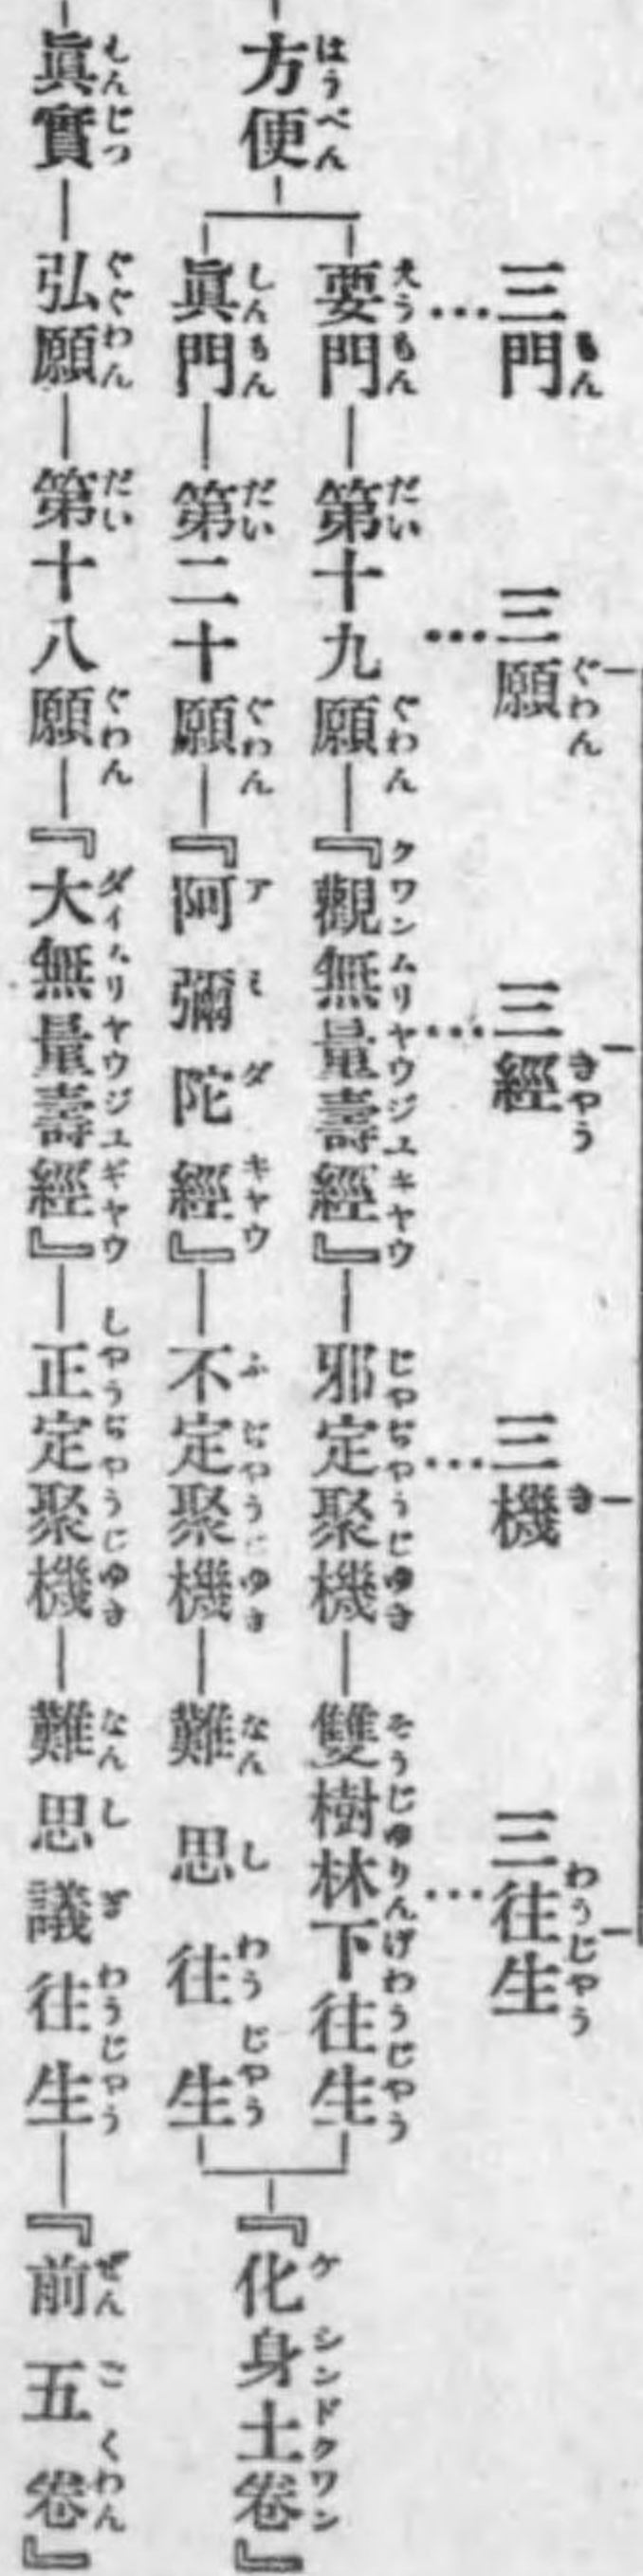 三門…三願…三經…三機…三往生
方便
要門―第十九願―『觀無量壽經』―邪定聚機―雙樹林下往生
眞門―第二十願―『阿彌陀經』―不定聚機―難思往生
『化身土卷』
眞實―弘願―第十八願―『大無量壽經』―正定聚機―難思議往生―『前五卷』